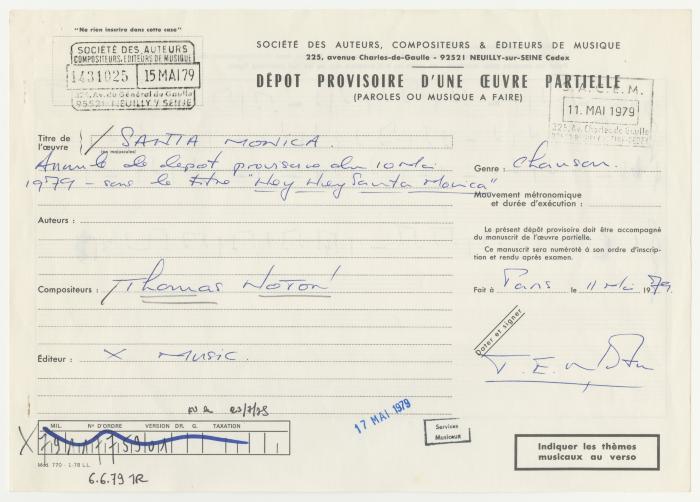 "Ne rien inscrire dans cette case"
SOCIÉTÉ DES AUTEURS
COMPOSITEURS, EDITEURS DE MUSIQUE
1431025 15 MAI 79
225, Av. du Général de Gaulle
92521 NEUILLY S/ SEINE
SOCIÉTÉ DES AUTEURS, COMPOSITEURS & ÉDITEURS DE MUSIQUE
225, avenue Charles-de-Gaulle - 92521 NEUILLY-sur-SEINE Cedex
DÉPOT PROVISOIRE D'UNE ŒUVRE PARTIELLE
(PAROLES OU MUSIQUE A FAIRE)
S.A.C.E.M.
11. MAI 1979
225, Av. Charles-de-Gaulle
Titre de l'œuvre : SANTA MONICA
(en majuscules)
Annule le depot provisoire du 10 Mai
1979 - sous le titre "Hey Hey Santa Monica"
Genre : Chanson.
Mouvement métronomique
et durée d'exécution :
Auteurs :
Le présent dépôt provisoire doit être accompagné
du manuscrit de l'œuvre partielle.
Ce manuscrit sera numéroté à son ordre d'inscrip-
tion et rendu après examen.
Compositeurs : Thomas NOTON
Fait à Paris le 11 Mai 1979.
Dater et signer
Éditeur : X MUSIC.
17 MAI 1979
Services
Musicaux
MIL. N° D'ORDRE VERSION DR. G. TAXATION
Mod. 770 - 1-78 L.L.
6.6.79
Indiquer les thèmes
musicaux au verso